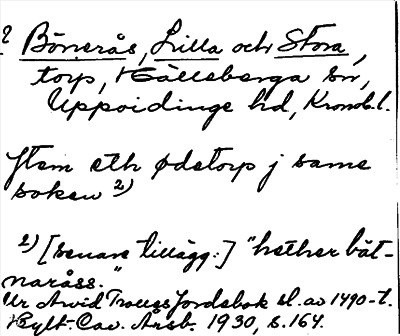 ? Bönerås, Lilla och Stora,
torp, Hälleberga sn,
Uppvidinge hd, Kronob.l.
Jtem eth ødetorp j same
soken 2)
2) [senare tillägg:] "hether båt-
naråss."
Ur Arvid Trolles Jordebok sl. av 1490-t.
Hylt.-Cav. Årsb. 1930, s. 164.